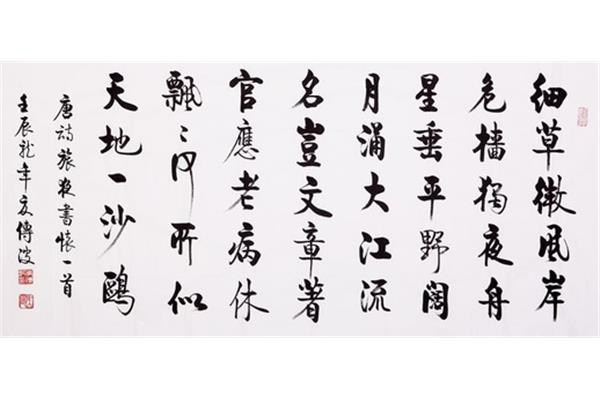 細草微風岸
危檣獨夜舟
星垂平野闊
月涌大江流
名豈文章著
官應老病休
飄〻何所似
天地一沙鷗
唐詩旅夜書懷一首
壬辰龙年